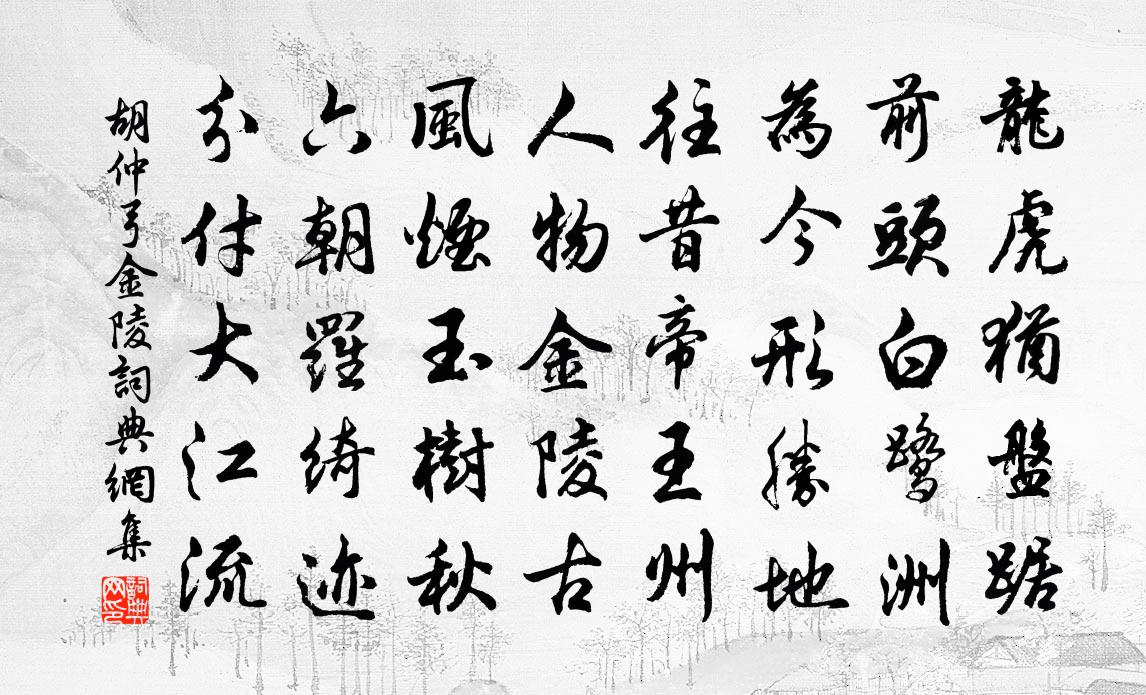 龍虎猶盤踞
前頭白鷺洲
為今形勝地
往昔帝王州
人物金陵古
風煙玉樹秋
六朝羅綺迹
分付大江流
胡仲弓金陵詞典網集
詞典網印